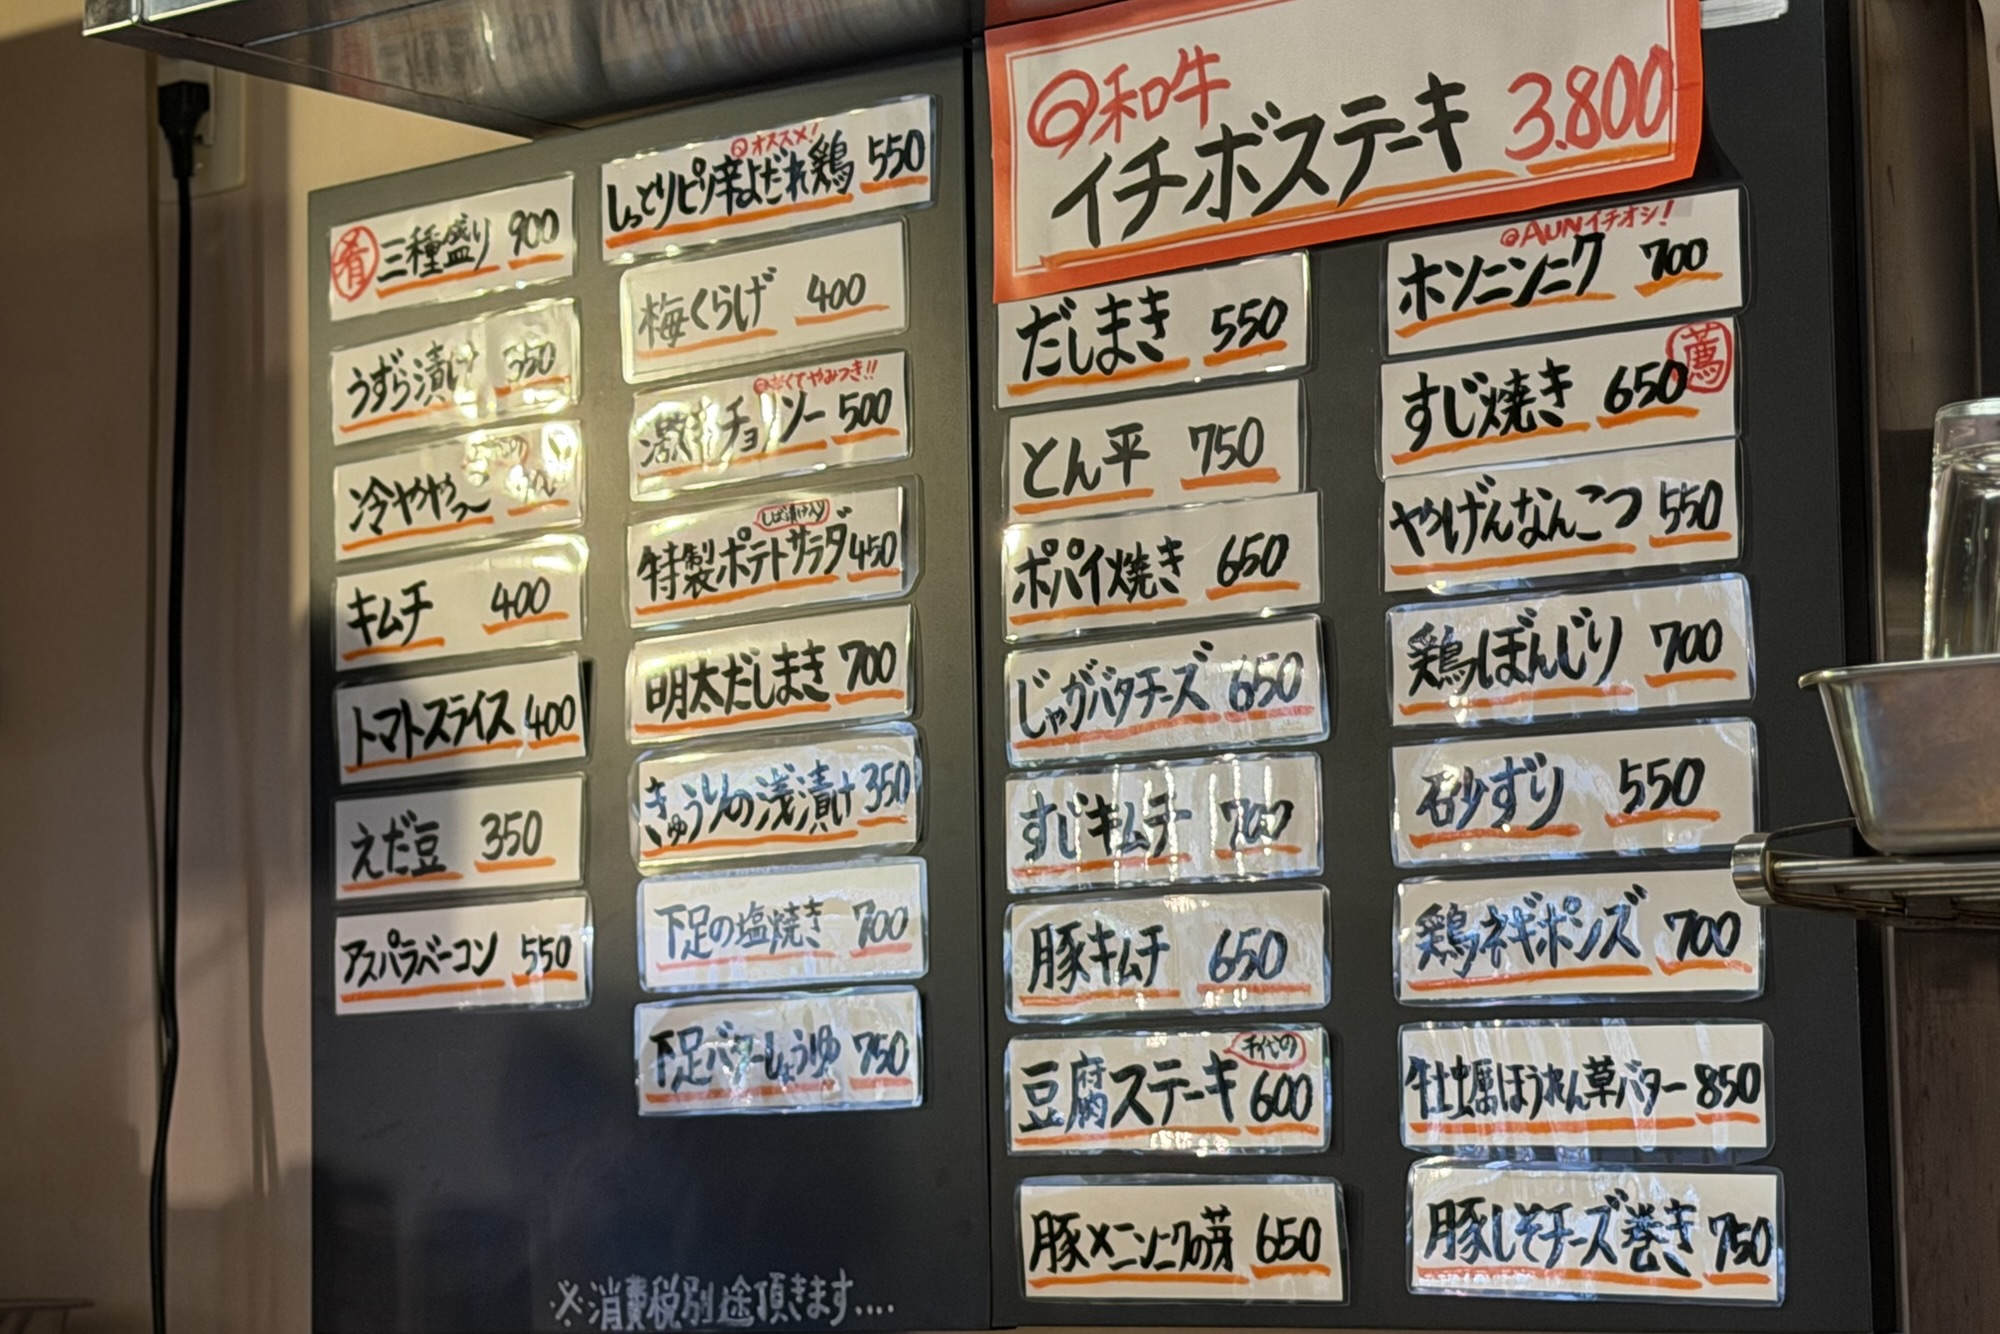 肴 三種盛り 900
うずら漬け 350
冷ややっこ
キムチ 400
トマトスライス 400
えだ豆 350
アスパラベーコン 550
オススメ!
しっとりピリ辛よだれ鶏 550
梅くらげ 400
辛くてやみつき!!
激辛チョリソー 500
しば漬け入り
特製ポテトサラダ 450
明太だしまき 700
きゅうりの浅漬け 350
下足の塩焼き 700
下足バターしょうゆ 750
※消費税別途頂きます....
和牛
イチボステーキ 3.800
だしまき 550
とん平 750
ポパイ焼き 650
じゃがバタチーズ 650
すじキムチ 700
豚キムチ 650
千代の
豆腐ステーキ 600
豚×ニンニクの芽 650
AUNイチオシ!
ホソニンニク 700
すじ焼き 650 薦
やげんなんこつ 550
鶏ぼんじり 700
砂ずり 550
鶏ネギポンズ 700
牡蠣ほうれん草バター 850
豚しそチーズ巻き 750